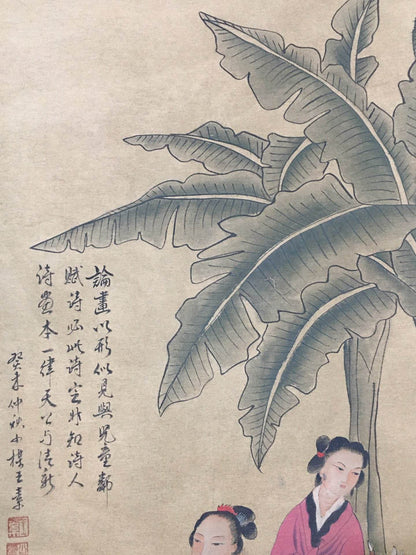 論畫以形似見與兒童鄰
賦詩必此詩定非知詩人
詩畫本一律天公與清新
癸未仲秋小某王素